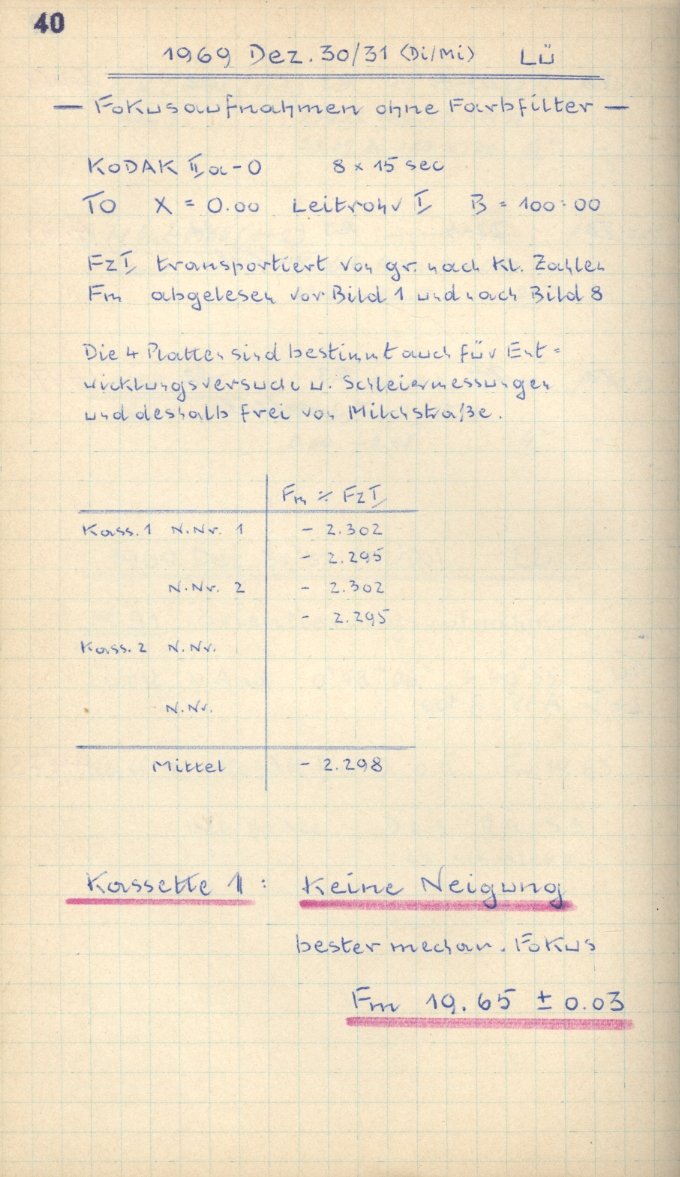 40
1969 Dez. 30/31 (Di/Mi) Lü
— Fokusaufnahmen ohne Farbfilter —
KODAK IIa-O 8 × 15 sec
TO X = 0.00 Leitrohr I B = 100:00
FzI transportiert von gr. nach kl. Zahlen
Fm abgelesen vor Bild 1 und nach Bild 8
Die 4 Platten sind bestimmt auch für Ent=
wicklungsversuche u. Schleiermessungen
und deshalb frei von Milchstraße.
Fm ÷ FzI
Kass. 1 N.Nr. 1 - 2.302
- 2.295
N.Nr. 2 - 2.302
- 2.295
Kass. 2 N.Nr.
N.Nr.
Mittel - 2.298
Kassette 1 : Keine Neigung
bester mechan. Fokus
Fm 19.65 ± 0.03